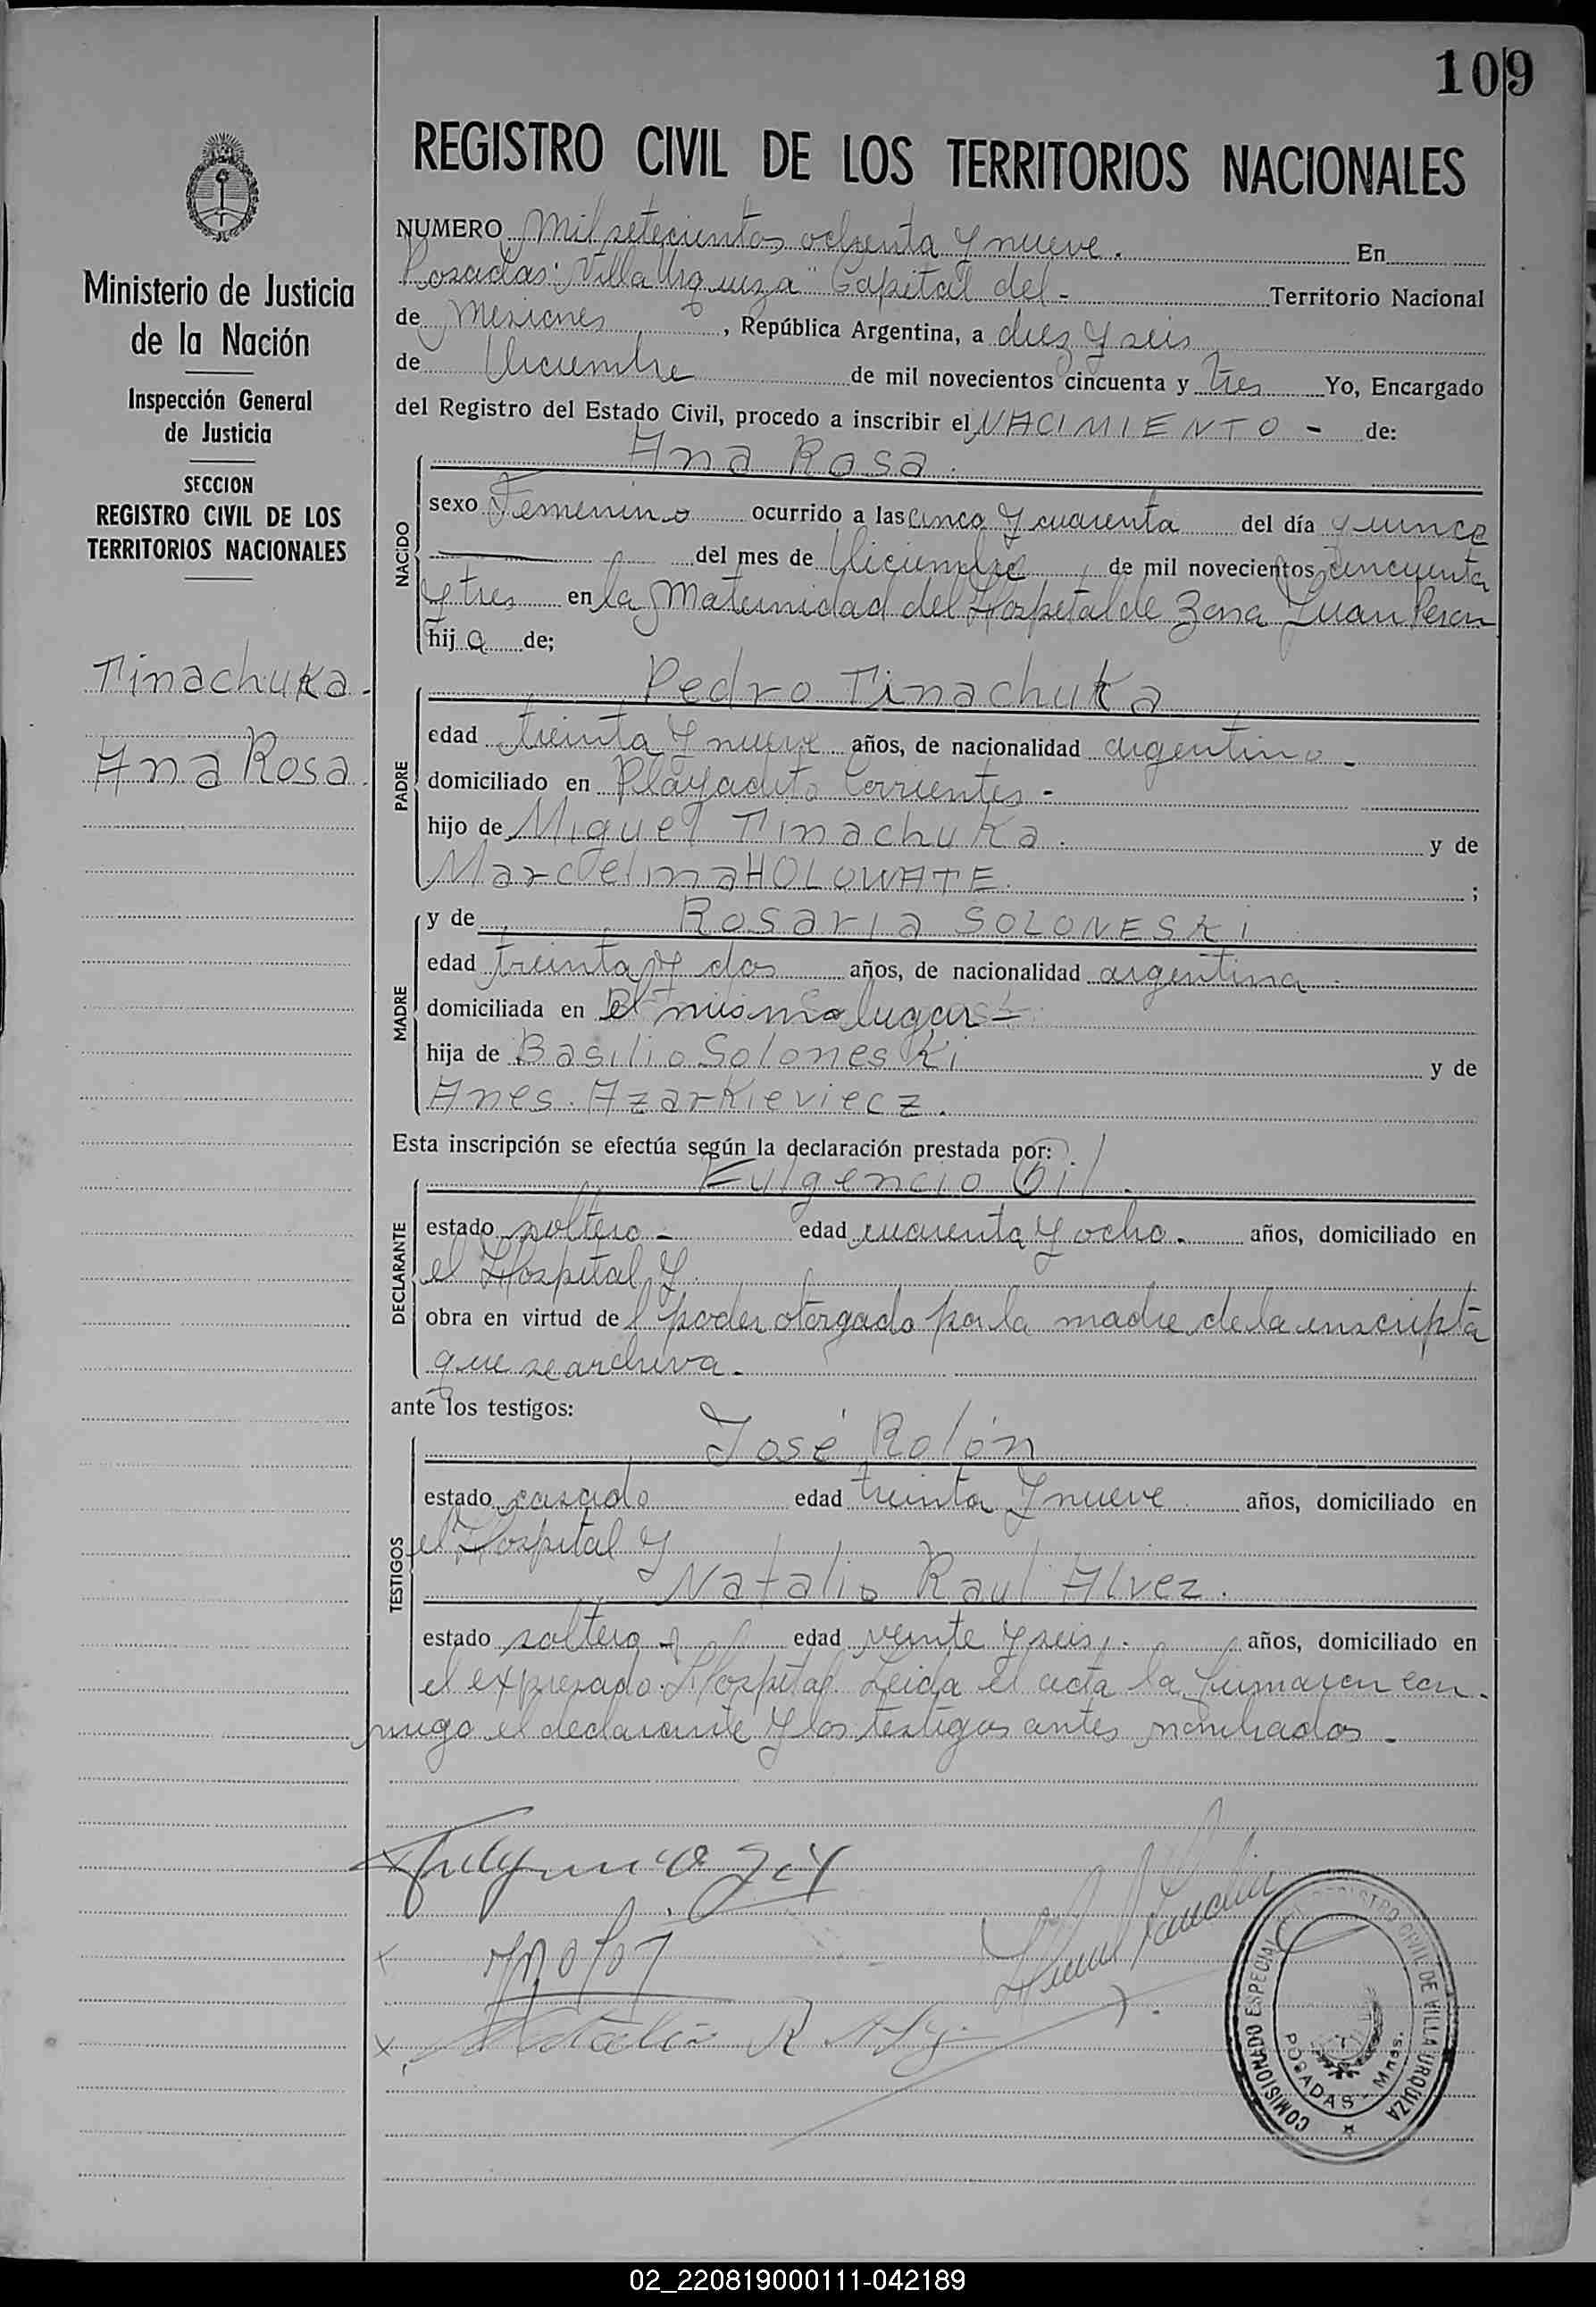 109
REGISTRO CIVIL DE LOS TERRITORIOS NACIONALES
Ministerio de Justicia
de la Nación
Inspección General
de Justicia
SECCION
REGISTRO CIVIL DE LOS
TERRITORIOS NACIONALES
Tinachuka.
Ana Rosa.
NUMERO Mil setecientos ochenta y nueve. En
Posadas: "Villa Urquiza" Capital del - Territorio Nacional
de Misiones, República Argentina, a diez y seis
de Diciembre de mil novecientos cincuenta y tres Yo, Encargado
del Registro del Estado Civil, procedo a inscribir el NACIMIENTO - de:
Ana Rosa.
NACIDO
sexo Femenino ocurrido a las cinco y cuarenta del día quince
del mes de Diciembre de mil novecientos cincuenta
y tres en la Maternidad del Hospital de Zona Juan Peron
hija de;
PADRE
Pedro Tinachuka
edad treinta y nueve años, de nacionalidad argentino -
domiciliado en Playadito Corrientes -
hijo de Miguel Tinachuka. y de
Marcelina HOLOWATE. ;
MADRE
y de Rosaria SOLONESKI
edad treinta y dos años, de nacionalidad argentina.
domiciliada en el mismo lugar -
hija de Basilio Soloneski y de
Anes. Azarkieviecz.
Esta inscripción se efectúa según la declaración prestada por:
DECLARANTE
Fulgencio Gil.
estado soltero - edad cuarenta y ocho. años, domiciliado en
el Hospital y
obra en virtud del poder otorgado por la madre de la inscripta
que se archiva.
ante los testigos:
TESTIGOS
José Rolón
estado casado edad treinta y nueve años, domiciliado en
el Hospital y
Natalio Raul Alvez.
estado soltero - edad veinte y seis. años, domiciliado en
el expresado Hospital. Leida el acta la firmaron con-
migo el declarante y los testigos antes nombrados -
COMISIONADO ESPECIAL REGISTRO CIVIL DE VILLA URQUIZA
POSADAS - Mnes.
02_220819000111-042189